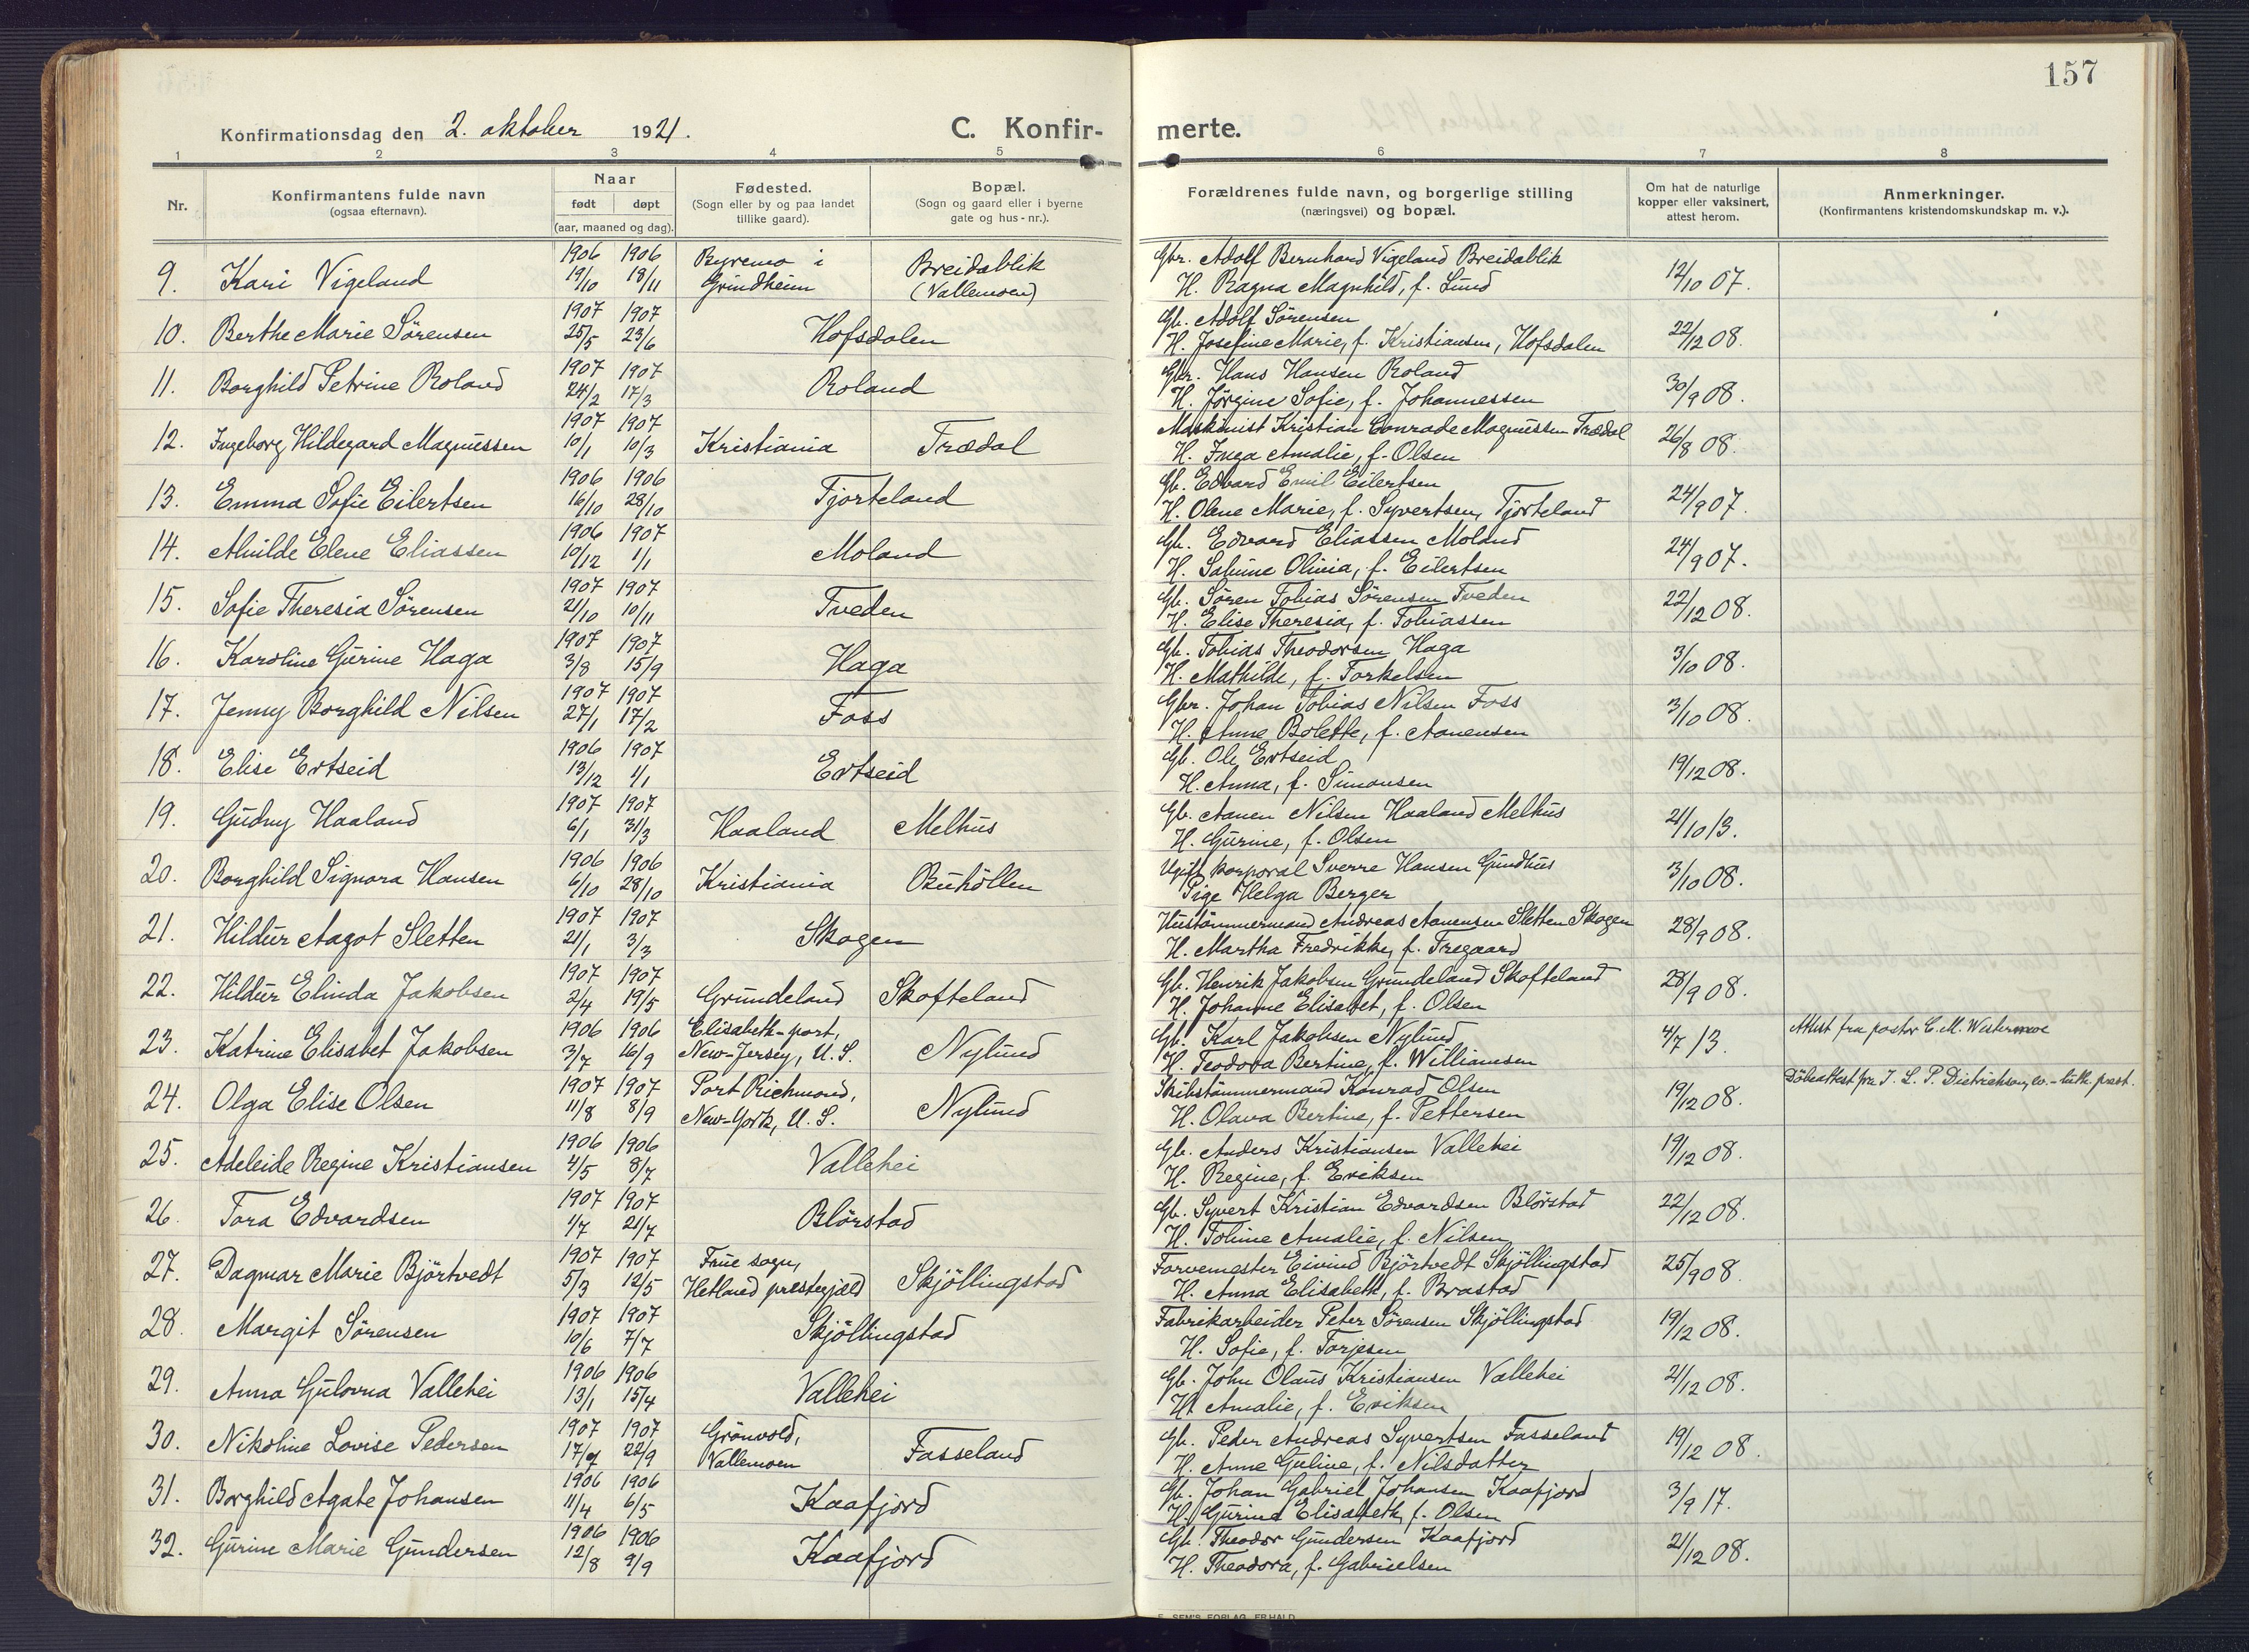 157
Konfirmationsdag den 2. oktober 1921.
C. Konfir-
merte.
1 2 3 4 5 6 7 8
Nr.
Konfirmantens fulde navn
(ogsaa efternavn).
Naar
født døpt
(aar, maaned og dag).
Fødested.
(Sogn eller by og paa landet
tillike gaard).
Bopæl.
(Sogn og gaard eller i byerne
gate og hus-nr.).
Forældrenes fulde navn, og borgerlige stilling
(næringsvei) og bopæl.
Om hat de naturlige
kopper eller vaksinert,
attest herom.
Anmerkninger.
(Konfirmantens kristendomskundskap m. v.).
1906 1906 Byremo i Gbr. Adolf Bernhard Vigeland Breidablik
9. Kari Vigeland 19/10 18/11 Grindheim Breidablik (Vallemoen) H. Ragna Magnhild, f. Lund 12/10 07.
1907 1907 Gb. Adolf Sörensen
10. Berthe Marie Sörensen 25/5 23/6 Hofsdalen H. Josefine Marie, f. Kristiansen, Hofsdalen 22/12 08.
1907 1907 Gbr. Hans Hansen Roland
11. Borghild Petrine Roland 24/2 17/3 Roland H. Jørgine Sofie, f. Johannessen 30/9 08.
1907 1907 Maskinist Kristian Conrade Magnussen Trædal
12. Ingeborg Hildegard Magnussen 10/1 10/3 Kristiania Trædal H. Inga Amalie, f. Olsen 26/8 08.
1906 1906 Gb. Edvard Emil Eilertsen
13. Emma Sofie Eilertsen 16/10 28/10 Tjorteland H. Olene Marie, f. Syvertsen, Tjorteland 24/9 07.
1906 1907 Gb. Edvard Eliassen Moland
14. Alvilde Elene Eliassen 10/12 1/1 Moland H. Sabine Olivia, f. Eilertsen 24/9 07.
1907 1907 Gb. Sören Tobias Sörensen Tveden
15. Sofie Theresia Sörensen 21/10 10/11 Tveden H. Elise Theresia, f. Tobiassen 22/12 08.
1907 1907 Gb. Tobias Theodorsen Haga
16. Karoline Gurine Haga 3/8 15/9 Haga H. Mathilde, f. Torkelsen 3/10 08.
1907 1907 Gbr. Johan Tobias Nilsen Foss
17. Jenny Borghild Nilsen 27/1 17/2 Foss H. Anne Bolette, f. Aanensen 3/10 08.
1906 1907 Gb. Ole Ertseid
18. Elise Ertseid 13/12 1/1 Ertseid H. Anna, f. Simonsen 19/12 08.
1907 1907 Gb. Aanen Nilsen Haaland Melhus
19. Gudny Haaland 6/1 31/3 Haaland Melhus H. Gurine, f. Olsen 21/10 13.
1906 1906 Ugift korporal Sverre Hansen Gundhus
20. Borghild Signora Hansen 6/10 28/10 Kristiania Buhöllen Pige Helga Berger 3/10 08.
1907 1907 Hustömmermand Andreas Aanensen Sletten Skogen
21. Hildur Aagot Sletten 21/1 3/3 Skogen H. Martha Fredrikke, f. Tregaard 28/9 08.
1907 1907 Gb. Henrik Jakobsen Grundeland Skofteland
22. Hildur Elinda Jakobsen 2/4 19/5 Grundeland Skofteland H. Johanne Elisabet, f. Olsen 28/9 08.
1906 1906 Elisabeth-port, Gb. Karl Jakobsen Nylund Attest fra pastor C. M. Westermoe
23. Katrine Elisabet Jakobsen 3/7 16/9 New-Jersey, U. S. Nylund H. Teodora Bertine, f. Williamsen 4/7 13.
1907 1907 Port Richmond, Skibstömmermand Konrad Olsen Döbeattest fra J. L. P. Dietrichson, ev.-luth. prest.
24. Olga Elise Olsen 11/8 8/9 New-York, U. S. Nylund H. Olava Bertine, f. Pettersen 19/12 08.
1906 1906 Gb. Anders Kristiansen Vallehei
25. Adeleide Regine Kristiansen 4/5 8/7 Vallehei H. Regine, f. Eriksen 19/12 08.
1907 1907 Gb. Syvert Kristian Edvardsen Blörstad
26. Tora Edvardsen 1/7 21/7 Blörstad H. Toline Amalie, f. Nilsen 22/12 08.
1907 1907 Frue sogn, Farvemester Eivind Björtvedt Skjöllingstad
27. Dagmar Marie Björtvedt 5/3 12/5 Hetland prestegjæld Skjöllingstad H. Anna Elisabeth, f. Brastad 25/9 08.
1907 1907 Fabrikarbeider Peter Sörensen Skjöllingstad
28. Margit Sörensen 10/6 7/7 Skjöllingstad H. Sofie, f. Torjesen 19/12 08.
1906 1906 Gb. John Olaus Kristiansen Vallehei
29. Anna Gulovna Vallehei 13/1 15/4 Vallehei H. Amalie, f. Eriksen 21/12 08.
1907 1907 Grönvold, Gb. Peder Andreas Syvertsen Fasseland
30. Nikoline Lovise Pedersen 17/7 22/9 Vallemoen Fasseland H. Anne Guline, f. Nilsdatter 19/12 08.
1906 1906 Gb. Johan Gabriel Johansen Kaafjord
31. Borghild Agate Johansen 11/4 6/5 Kaafjord H. Gurine Elisabeth, f. Olsen 3/9 17.
1906 1906 Gb. Theodor Gundersen Kaafjord
32. Gurine Marie Gundersen 12/8 9/9 Kaafjord H. Theodora, f. Gabrielsen 21/12 08.
SEM'S FORLAG